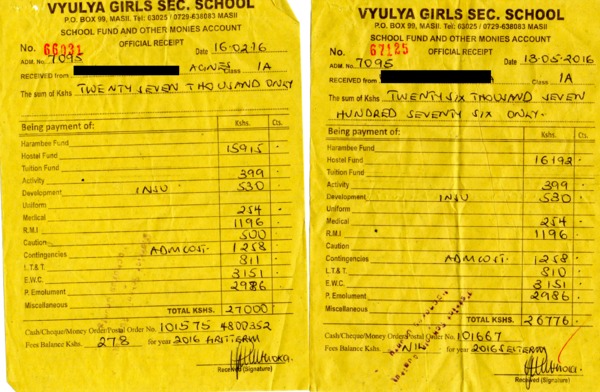 VYULYA GIRLS SEC. SCHOOL
P.O. BOX 99, MASII. Tel: 63025 / 0729-638083 MASII
SCHOOL FUND AND OTHER MONIES ACCOUNT
OFFICIAL RECEIPT
No. 66031 Date 16-02.16
ADM. No. 7095
RECEIVED from AGNES Class 1A
The sum of Kshs TWENTY SEVEN THOUSAND ONLY
Being payment of: Kshs. Cts.
Harambee Fund
Hostel Fund 15915
Tuition Fund
Activity 399
Development INSU 530
Uniform
Medical 254
R.M.I 1196
Caution 500
Contingencies ADM COST. 1258
L.T&T 811
E.W.C. 3151
P. Emolument 2986
Miscellaneous
TOTAL KSHS. 27000
Cash/Cheque/Money Order/Postal Order No. 101575 4800352
Fees Balance Kshs. 278 for year 2016
Received (Signature)
VYULYA GIRLS SEC. SCHOOL
P.O. BOX 99, MASII. Tel: 63025 / 0729-638083 MASII
SCHOOL FUND AND OTHER MONIES ACCOUNT
OFFICIAL RECEIPT
No. 67125 Date 13-05-2016
ADM. No. 7095
RECEIVED from Class 1A
The sum of Kshs TWENTY SIX THOUSAND SEVEN
HUNDRED SEVENTY SIX ONLY.
Being payment of: Kshs. Cts.
Harambee Fund
Hostel Fund 16192
Tuition Fund
Activity 399
Development INSU 530
Uniform
Medical 254
R.M.I 1196
Caution
Contingencies ADM COST. 1258
L.T&T. 810
E.W.C. 3151
P. Emolument 2986
Miscellaneous
TOTAL KSHS. 26776
Cash/Cheque/Money Order/Postal Order No. 101667
Fees Balance Kshs. NIL for year 2016
Received (Signature)